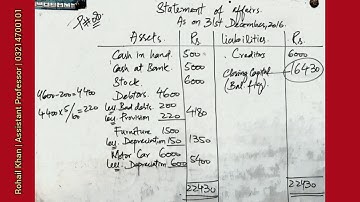 Rohail Khani Assistant Professor | 03214700101
P#30
Statement of affairs.
As on 31st December, 2016.
Assets. Rs. Liabilities. Rs.
Cash in hand. 500 Creditors 6000
Cash at Bank. 5000 Closing Capital 16430
Stock 6000 (Bal fig)
4600-200=4400 Debtors. 4600
4400×5/100=220 Less Bad debts 200
Less Provision 220 4180
Furniture 1500
Less. Depreciation 150 1350
Motor Car 6000
Less. Depreciation 600 5400
22430 22430